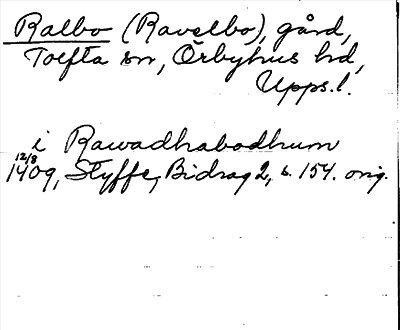 Ralbo (Ravelbo), gård,
Tolfta sn, Örbyhus hd,
Upps.l.
i Rawadhabodhum
12/8
1409, Styffe, Bidrag 2, s. 154. orig.